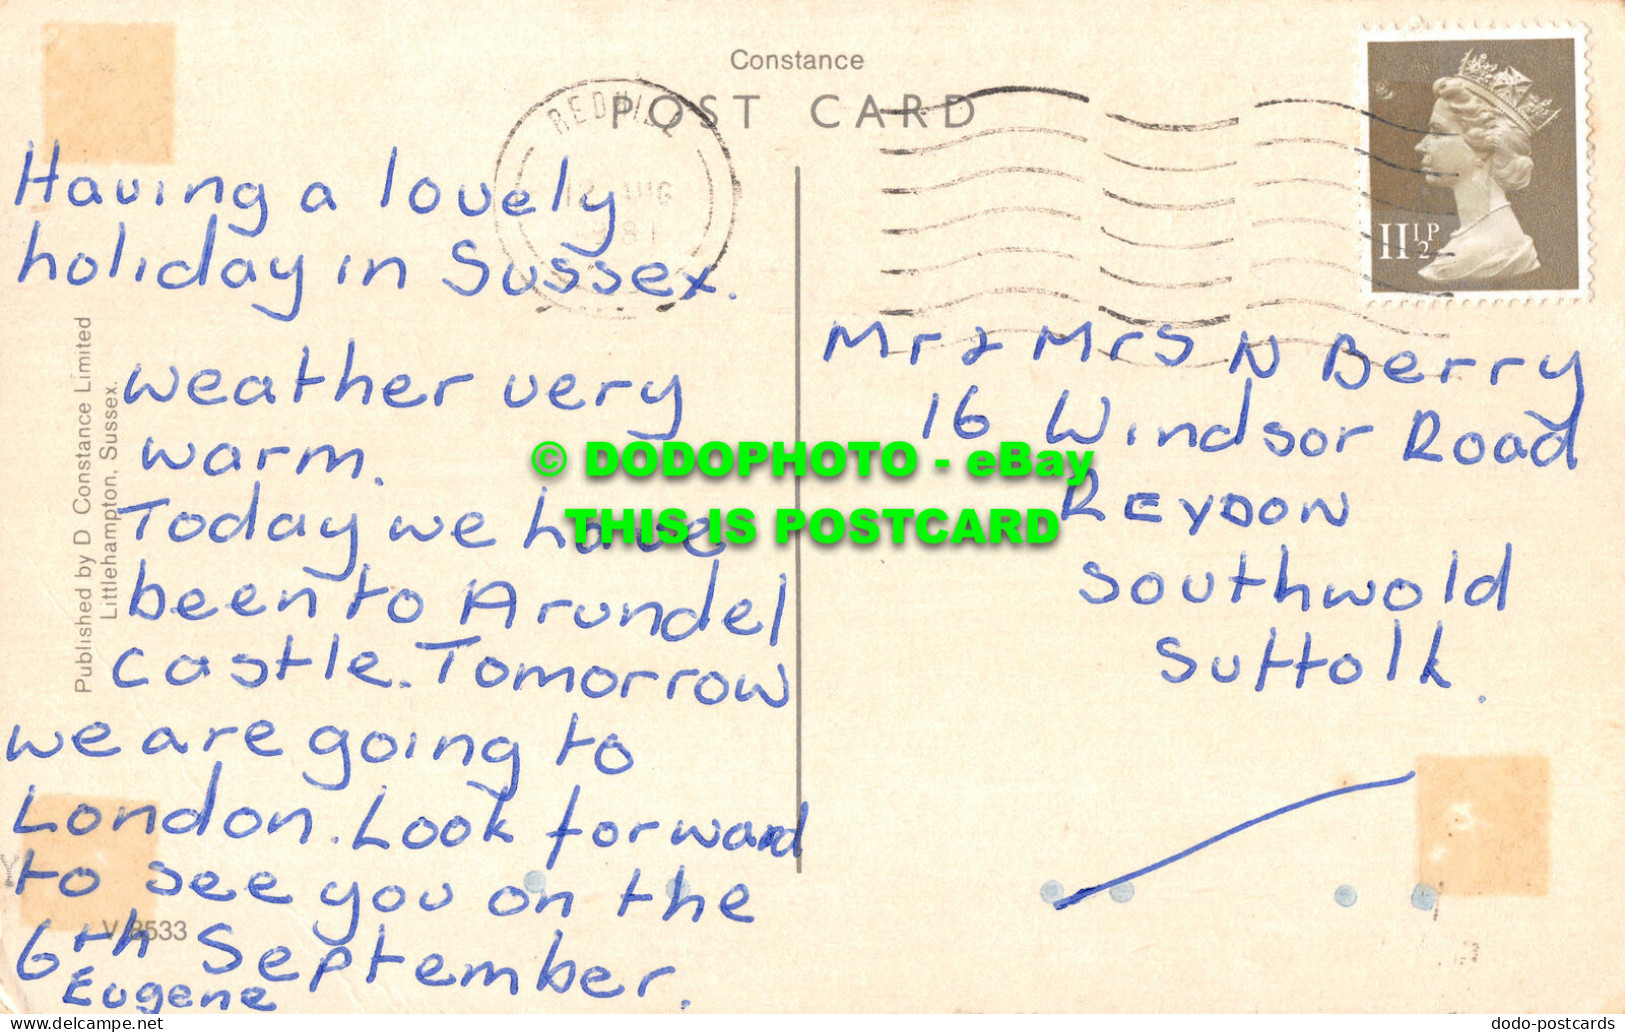 Constance
POST CARD
REDHILL
12 AUG
1981
11½P
Having a lovely
holiday in Sussex.
weather very
warm.
Today we have
been to Arundel
Castle. Tomorrow
we are going to
London. Look forward
to see you on the
6th September.
Eugene
Mr & Mrs N Berry
16 Windsor Road
REYDON
Southwold
Suffolk.
Published by D Constance Limited
Littlehampton, Sussex.
© DODOPHOTO - eBay
THIS IS POSTCARD
delcampe.net
dodo-postcards